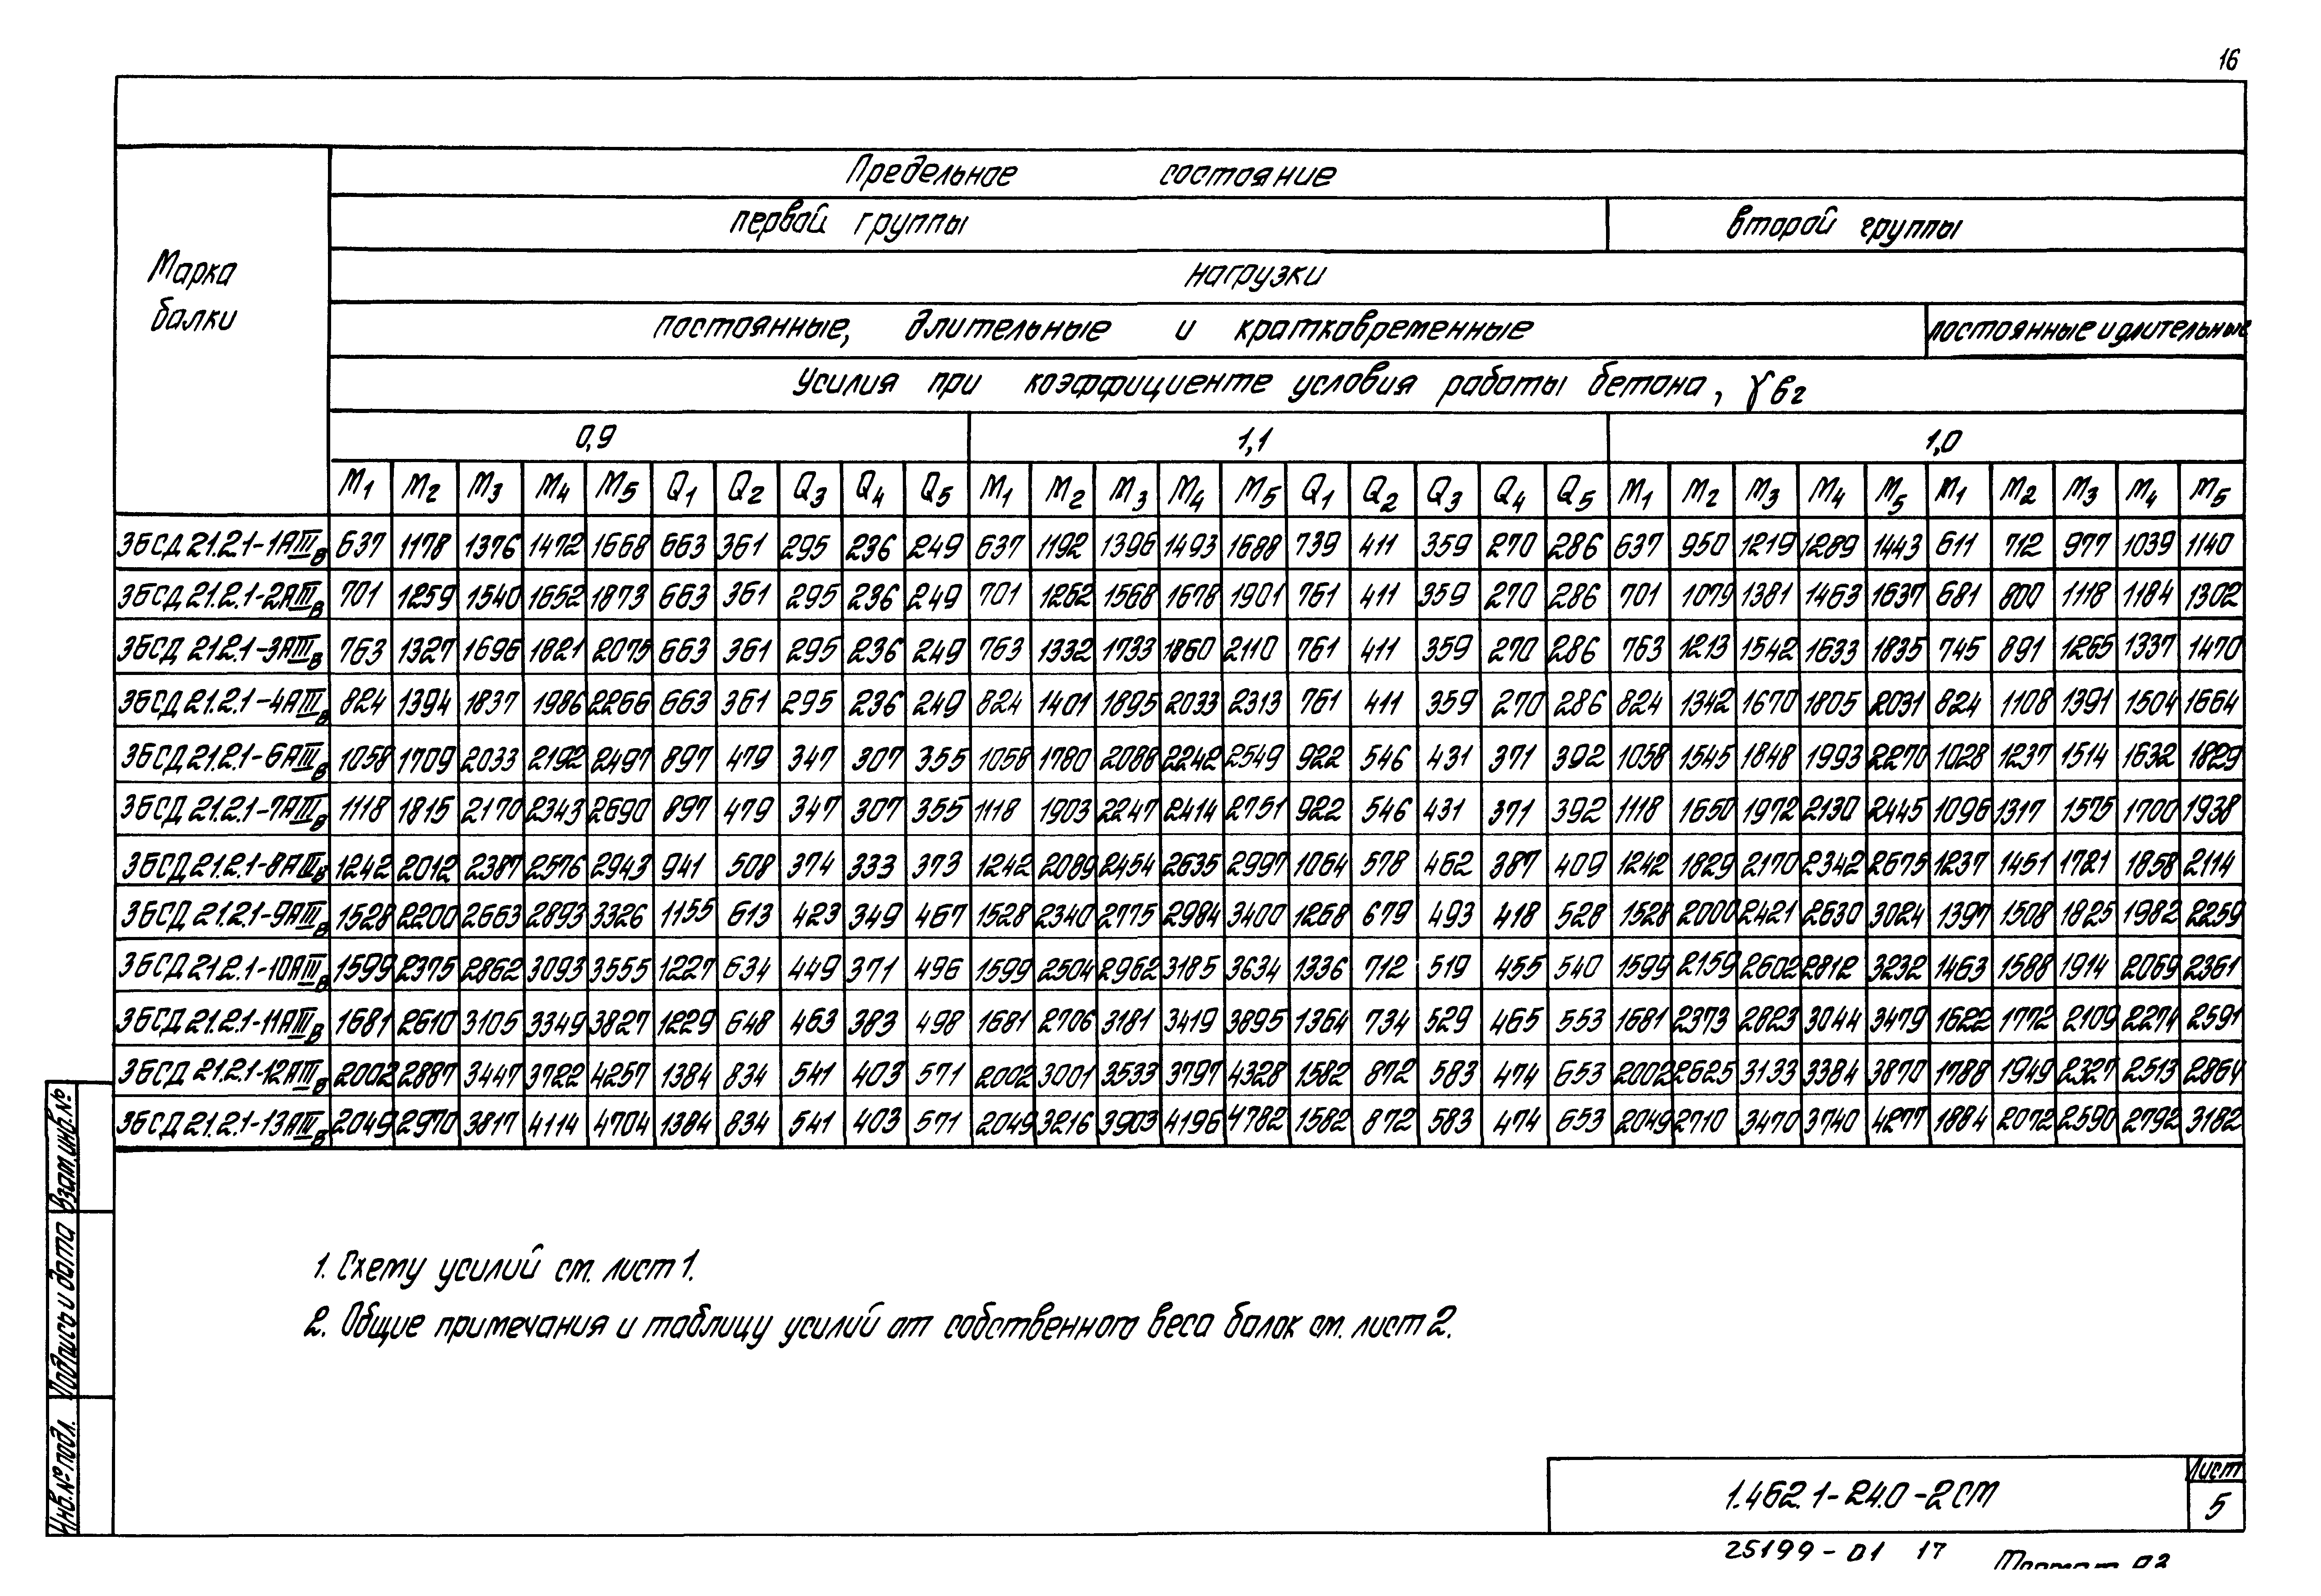 16
Предельное состояние
первой группы второй группы
Марка балки
нагрузки
постоянные, длительные и кратковременные постоянные и длительные
Усилия при коэффициенте условия работы бетона, γв2
0,9 1,1 1,0
M1 M2 M3 M4 M5 Q1 Q2 Q3 Q4 Q5 M1 M2 M3 M4 M5 Q1 Q2 Q3 Q4 Q5 M1 M2 M3 M4 M5 M1 M2 M3 M4 M5
3БСД 21.2.1-1АIIIв 637 1178 1376 1472 1668 663 361 295 236 249 637 1192 1396 1493 1688 739 411 359 270 286 637 950 1219 1289 1443 611 712 977 1039 1140
3БСД 21.2.1-2АIIIв 701 1259 1540 1652 1873 663 361 295 236 249 701 1262 1568 1678 1901 761 411 359 270 286 701 1079 1381 1463 1637 681 800 1118 1184 1302
3БСД 21.2.1-3АIIIв 763 1327 1696 1821 2075 663 361 295 236 249 763 1332 1733 1860 2110 761 411 359 270 286 763 1213 1542 1633 1835 745 891 1265 1337 1470
3БСД 21.2.1-4АIIIв 824 1394 1837 1986 2266 663 361 295 236 249 824 1401 1895 2033 2313 761 411 359 270 286 824 1342 1670 1805 2031 824 1108 1391 1504 1664
3БСД 21.2.1-6АIIIв 1058 1709 2033 2192 2497 897 479 347 307 355 1058 1780 2088 2242 2549 922 546 431 371 392 1058 1545 1848 1993 2270 1028 1237 1514 1632 1829
3БСД 21.2.1-7АIIIв 1118 1815 2170 2343 2690 897 479 347 307 355 1118 1903 2247 2414 2751 922 546 431 371 392 1118 1650 1972 2130 2445 1096 1317 1575 1700 1938
3БСД 21.2.1-8АIIIв 1242 2012 2387 2576 2943 941 508 374 333 373 1242 2089 2454 2635 2997 1064 578 462 387 409 1242 1829 2170 2342 2675 1237 1451 1721 1858 2114
3БСД 21.2.1-9АIIIв 1528 2200 2663 2893 3326 1155 613 423 349 467 1528 2340 2775 2984 3400 1268 679 493 418 528 1528 2000 2421 2630 3024 1397 1508 1825 1982 2259
3БСД 21.2.1-10АIIIв 1599 2375 2862 3093 3555 1227 634 449 371 496 1599 2504 2962 3185 3634 1336 712 519 455 540 1599 2159 2602 2812 3232 1463 1588 1914 2069 2361
3БСД 21.2.1-11АIIIв 1681 2610 3105 3349 3827 1229 648 463 383 498 1681 2706 3181 3419 3895 1364 734 529 465 553 1681 2373 2823 3044 3479 1622 1772 2109 2274 2591
3БСД 21.2.1-12АIIIв 2002 2887 3447 3722 4257 1384 834 541 403 571 2002 3001 3533 3797 4328 1582 872 583 474 653 2002 2625 3133 3384 3870 1788 1949 2327 2513 2864
3БСД 21.2.1-13АIIIв 2049 2970 3817 4114 4704 1384 834 541 403 571 2049 3216 3903 4196 4782 1582 872 583 474 653 2049 2710 3470 3740 4277 1884 2072 2590 2792 3182
1. Схему усилий см. лист 1.
2. Общие примечания и таблицу усилий от собственного веса балок см. лист 2.
Взам.инв.№
Подпись и дата
Инв.№ подл.
1.462.1-24.0-2СМ
Лист
5
25199-01 17